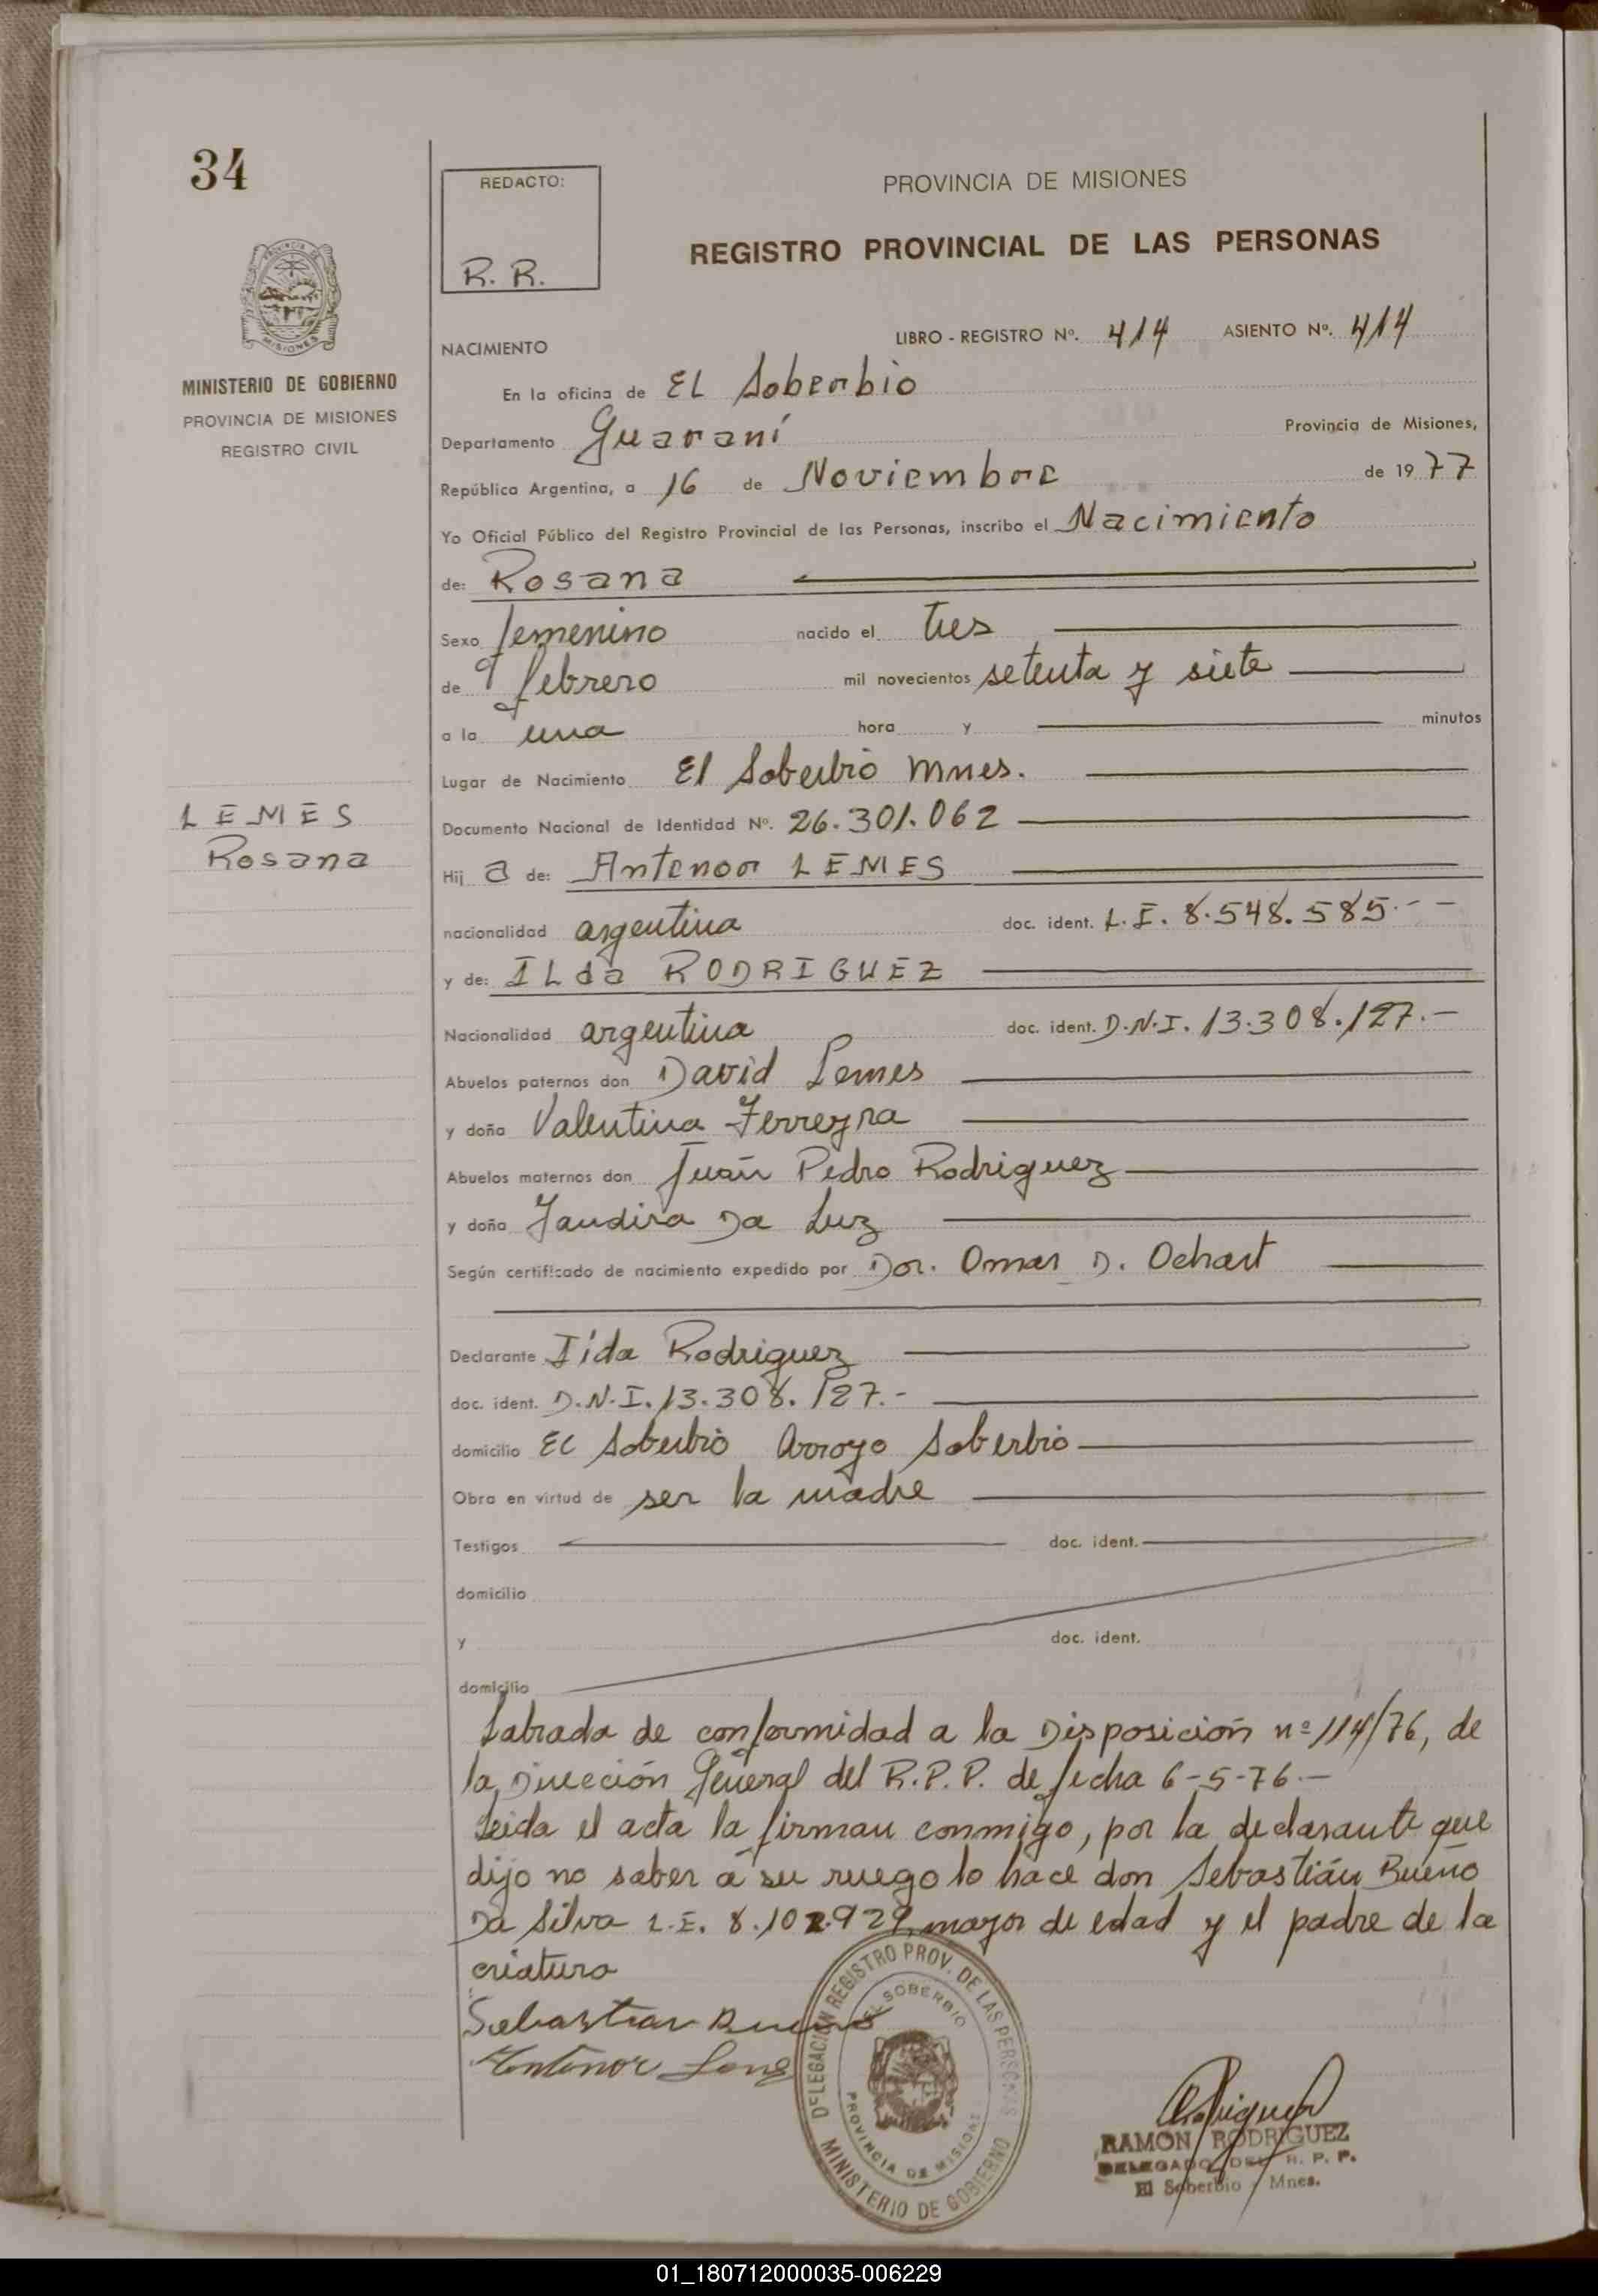 34
REDACTO:
R. R.
PROVINCIA DE MISIONES
REGISTRO PROVINCIAL DE LAS PERSONAS
MINISTERIO DE GOBIERNO
PROVINCIA DE MISIONES
REGISTRO CIVIL
NACIMIENTO
LIBRO - REGISTRO Nº. 414 ASIENTO Nº. 414
En la oficina de EL Soberbio
Departamento Guaraní Provincia de Misiones,
República Argentina, a 16 de Noviembre de 1977
Yo Oficial Público del Registro Provincial de las Personas, inscribo el Nacimiento
de: Rosana
Sexo femenino nacido el tres
de febrero mil novecientos setenta y siete
a la una hora y minutos
Lugar de Nacimiento El Soberbio Mnes.
LEMES
Rosana
Documento Nacional de Identidad Nº. 26.301.062
Hij a de: Antenor LEMES
nacionalidad argentina doc. ident. L.E. 8.548.585.--
y de: ILda RODRIGUEZ
Nacionalidad argentina doc. ident. D.N.I. 13.308.127.-
Abuelos paternos don David Lemes
y doña Valentina Ferreyra
Abuelos maternos don Juan Pedro Rodriguez
y doña Jandira Da Luz
Según certificado de nacimiento expedido por Dor. Omar D. Ochart
Declarante Ilda Rodriguez
doc. ident. D.N.I. 13.308.127.-
domicilio El Soberbio Arroyo Soberbio
Obra en virtud de ser la madre
Testigos doc. ident.
domicilio
y doc. ident.
domicilio
Labrada de conformidad a la Disposición nº 114/76, de
la Dirección General del R.P.P. de fecha 6-5-76.-
Leida el acta la firman conmigo, por la declarante que
dijo no saber a su ruego lo hace don Sebastián Bueno
Da Silva L.E. 8.102.929, mayor de edad y el padre de la
criatura
Sebastian Bueno
Antenor Lemes
DELEGACION REGISTRO PROV. DE LAS PERSONAS
EL SOBERBIO
PROVINCIA DE MISIONES
MINISTERIO DE GOBIERNO
RAMON RODRIGUEZ
DELEGADO DEL R. P. P.
El Soberbio - Mnes.
01_180712000035-006229